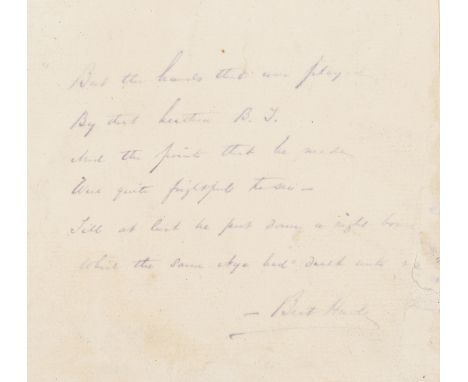 But the hands that were play
By that heathen B. J.
And the points that he made
Were quite frightful to see —
Till at last he put down a right bow
Which the same Nye had dealt unto
— Bret Harte